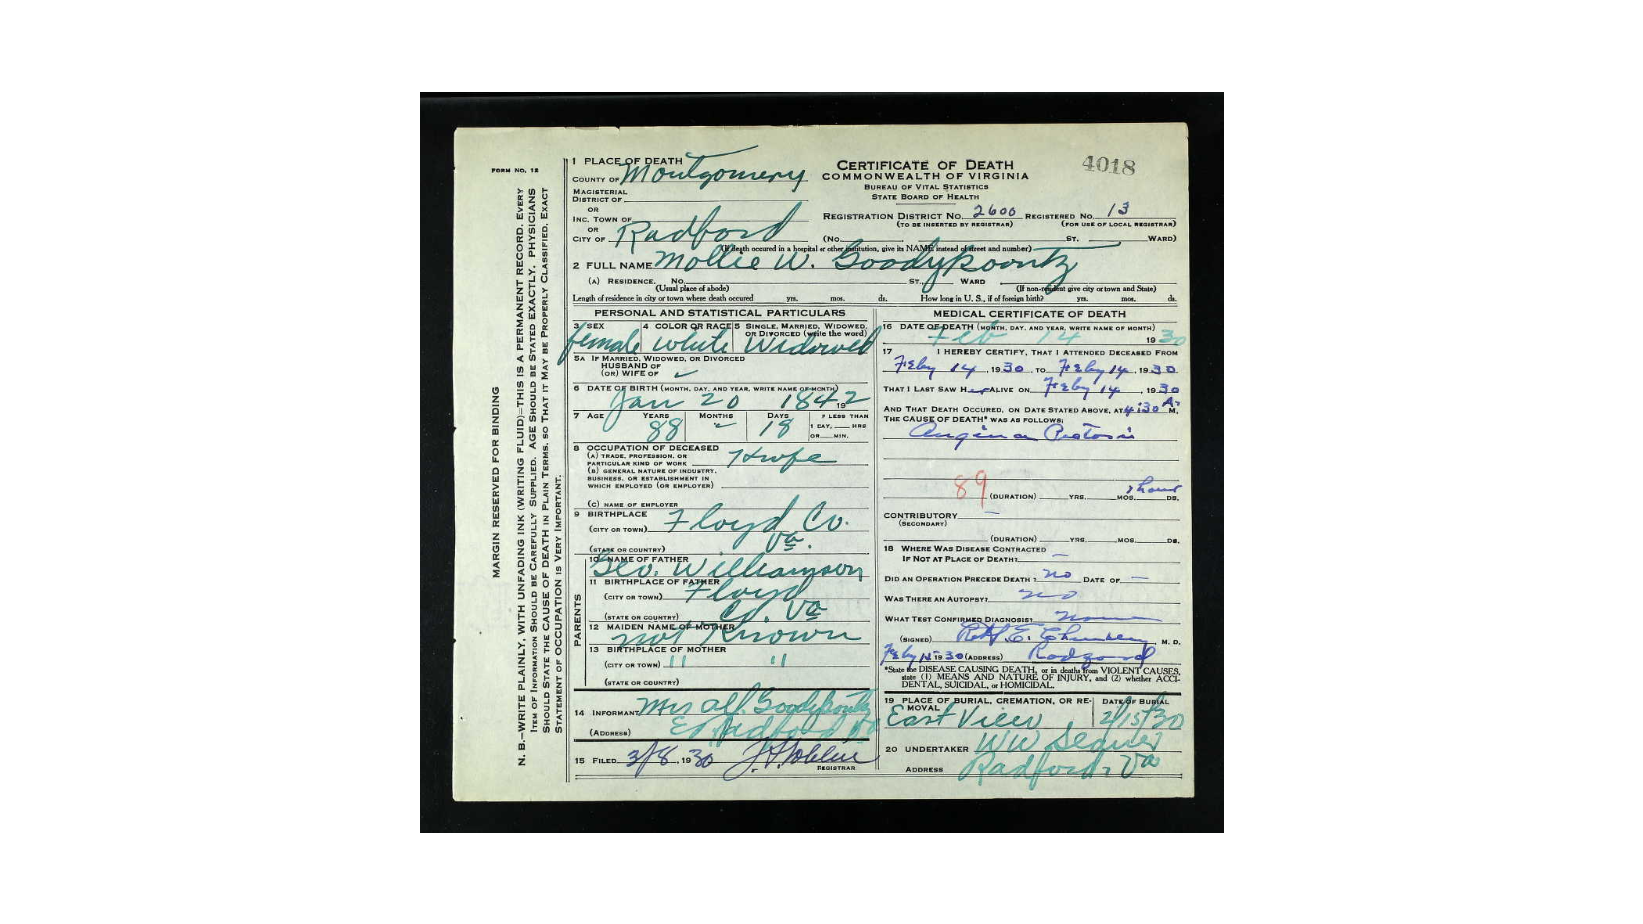 FORM NO. 12
MARGIN RESERVED FOR BINDING
N. B.—WRITE PLAINLY, WITH UNFADING INK (WRITING FLUID)—THIS IS A PERMANENT RECORD. EVERY
ITEM OF INFORMATION SHOULD BE CAREFULLY SUPPLIED. AGE SHOULD BE STATED EXACTLY. PHYSICIANS
SHOULD STATE THE CAUSE OF DEATH IN PLAIN TERMS, SO THAT IT MAY BE PROPERLY CLASSIFIED. EXACT
STATEMENT OF OCCUPATION IS VERY IMPORTANT.
1 PLACE OF DEATH
COUNTY OF Montgomery
MAGISTERIAL
DISTRICT OF
OR
INC. TOWN OF
OR
CITY OF Radford
CERTIFICATE OF DEATH
COMMONWEALTH OF VIRGINIA
BUREAU OF VITAL STATISTICS
STATE BOARD OF HEALTH
4018
REGISTRATION DISTRICT NO. 2600 REGISTERED NO. 13
(TO BE INSERTED BY REGISTRAR) (FOR USE OF LOCAL REGISTRAR)
(NO. ST. WARD)
(If death occured in a hospital or other institution, give its NAME instead of street and number)
2 FULL NAME Mollie W. Goodykoontz
(A) RESIDENCE. NO. ST. WARD
(Usual place of abode) (If non-resident give city or town and State)
Length of residence in city or town where death occured yrs. mos. ds. How long in U. S., if of foreign birth? yrs. mos. ds.
PERSONAL AND STATISTICAL PARTICULARS
3 SEX 4 COLOR OR RACE 5 SINGLE, MARRIED, WIDOWED,
OR DIVORCED (write the word)
female white Widowed
5A IF MARRIED, WIDOWED, OR DIVORCED
HUSBAND OF
(OR) WIFE OF
6 DATE OF BIRTH (MONTH, DAY, AND YEAR, WRITE NAME OF MONTH)
Jan 20 1842
7 AGE YEARS MONTHS DAYS IF LESS THAN
88 18 1 DAY, HRS
OR MIN.
8 OCCUPATION OF DECEASED
(A) TRADE, PROFESSION, OR
PARTICULAR KIND OF WORK H wife
(B) GENERAL NATURE OF INDUSTRY,
BUSINESS, OR ESTABLISHMENT IN
WHICH EMPLOYED (OR EMPLOYER)
(C) NAME OF EMPLOYER
9 BIRTHPLACE
(CITY OR TOWN) Floyd Co.
(STATE OR COUNTRY) Va.
PARENTS
10 NAME OF FATHER
Geo. Williamson
11 BIRTHPLACE OF FATHER
(CITY OR TOWN) Floyd
(STATE OR COUNTRY) Co. Va
12 MAIDEN NAME OF MOTHER
not Known
13 BIRTHPLACE OF MOTHER
(CITY OR TOWN) " "
(STATE OR COUNTRY)
14 INFORMANT Mrs Alf. Goodykoontz
(ADDRESS) E Radford Va
15 FILED 3/8, 1930
REGISTRAR
MEDICAL CERTIFICATE OF DEATH
16 DATE OF DEATH (MONTH, DAY, AND YEAR, WRITE NAME OF MONTH)
Feb 14 1930
17 I HEREBY CERTIFY, THAT I ATTENDED DECEASED FROM
Feby 14, 1930, TO Feby 14, 1930
THAT I LAST SAW HER ALIVE ON Feby 14, 1930
AND THAT DEATH OCCURED, ON DATE STATED ABOVE, AT 4:30 A. M.
THE CAUSE OF DEATH* WAS AS FOLLOWS:
Angina Pectoris
89
(DURATION) YRS. MOS. hour DS.
CONTRIBUTORY —
(SECONDARY)
(DURATION) YRS. MOS. DS.
18 WHERE WAS DISEASE CONTRACTED
IF NOT AT PLACE OF DEATH? —
DID AN OPERATION PRECEDE DEATH? no DATE OF —
WAS THERE AN AUTOPSY? no
WHAT TEST CONFIRMED DIAGNOSIS?
(SIGNED) M. D.
Feby 1930 (ADDRESS) Radford
*State the DISEASE CAUSING DEATH, or in deaths from VIOLENT CAUSES,
state (1) MEANS AND NATURE OF INJURY, and (2) whether ACCI-
DENTAL, SUICIDAL, or HOMICIDAL.
19 PLACE OF BURIAL, CREMATION, OR RE- DATE OF BURIAL
MOVAL
East View 2/15/30
20 UNDERTAKER WW
ADDRESS Radford, Va